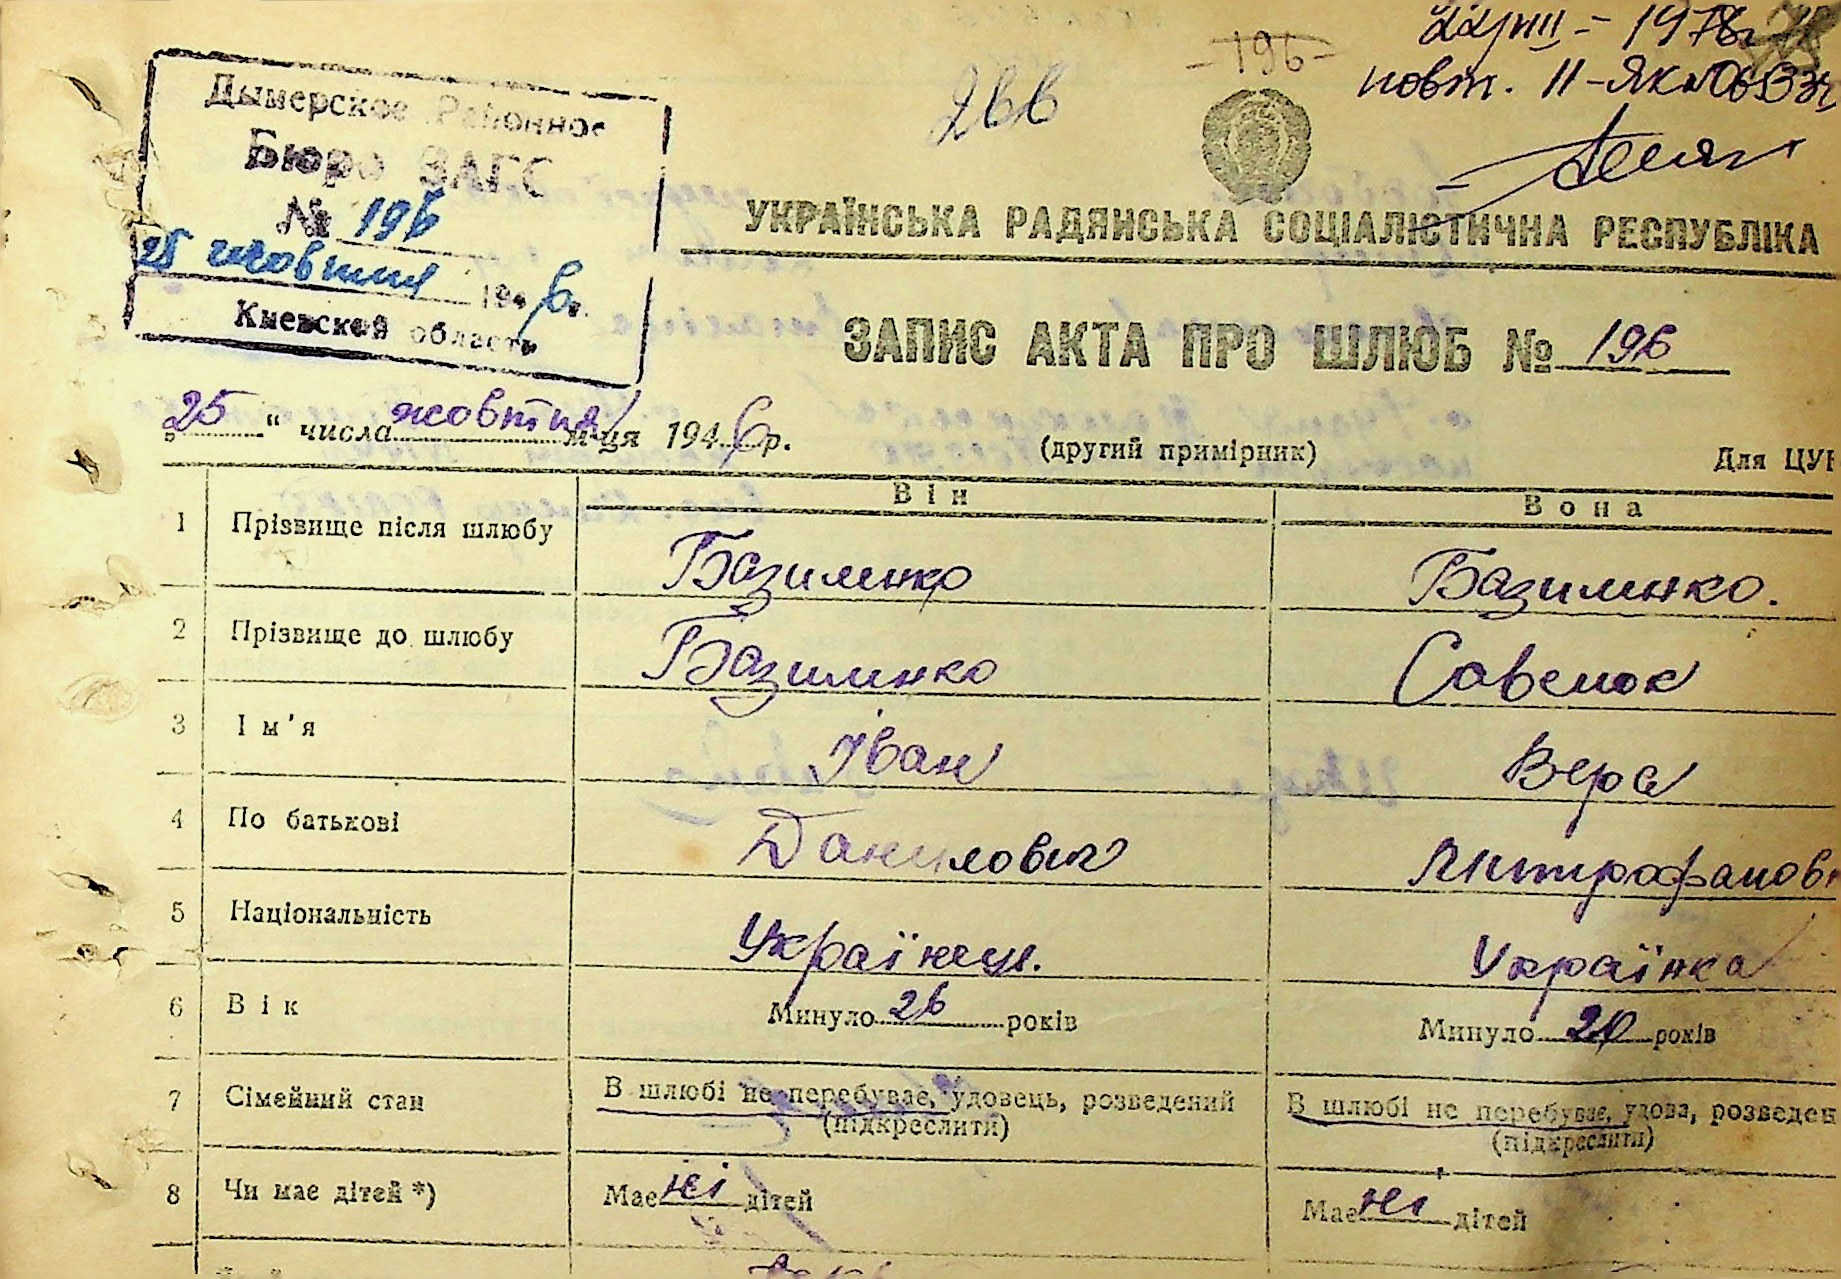 22/VIII - 1978г
повт. II-ЯК №
- 196 -
266
Дымерское Районное
Бюро ЗАГС
№ 196
25 жовтня 1946г.
Киевской области
УКРАЇНСЬКА РАДЯНСЬКА СОЦІАЛІСТИЧНА РЕСПУБЛІКА
ЗАПИС АКТА ПРО ШЛЮБ № 196
„25“ числа жовтня м-ця 1946 р.
(другий примірник)
Для ЦУ
Він Вона
1 Прізвище після шлюбу Базиленко Базиленко.
2 Прізвище до шлюбу Базиленко Савенок
3 Ім'я Іван Вера
4 По батькові Данилович Митрофанов
5 Національність Українець. Українка
6 Вік Минуло 26 років Минуло 20 років
7 Сімейний стан В шлюбі не перебуває, удовець, розведений В шлюбі не перебуває, удова, розведен
(підкреслити) (підкреслити)
8 Чи має дітей *) Має ні дітей Має ні дітей